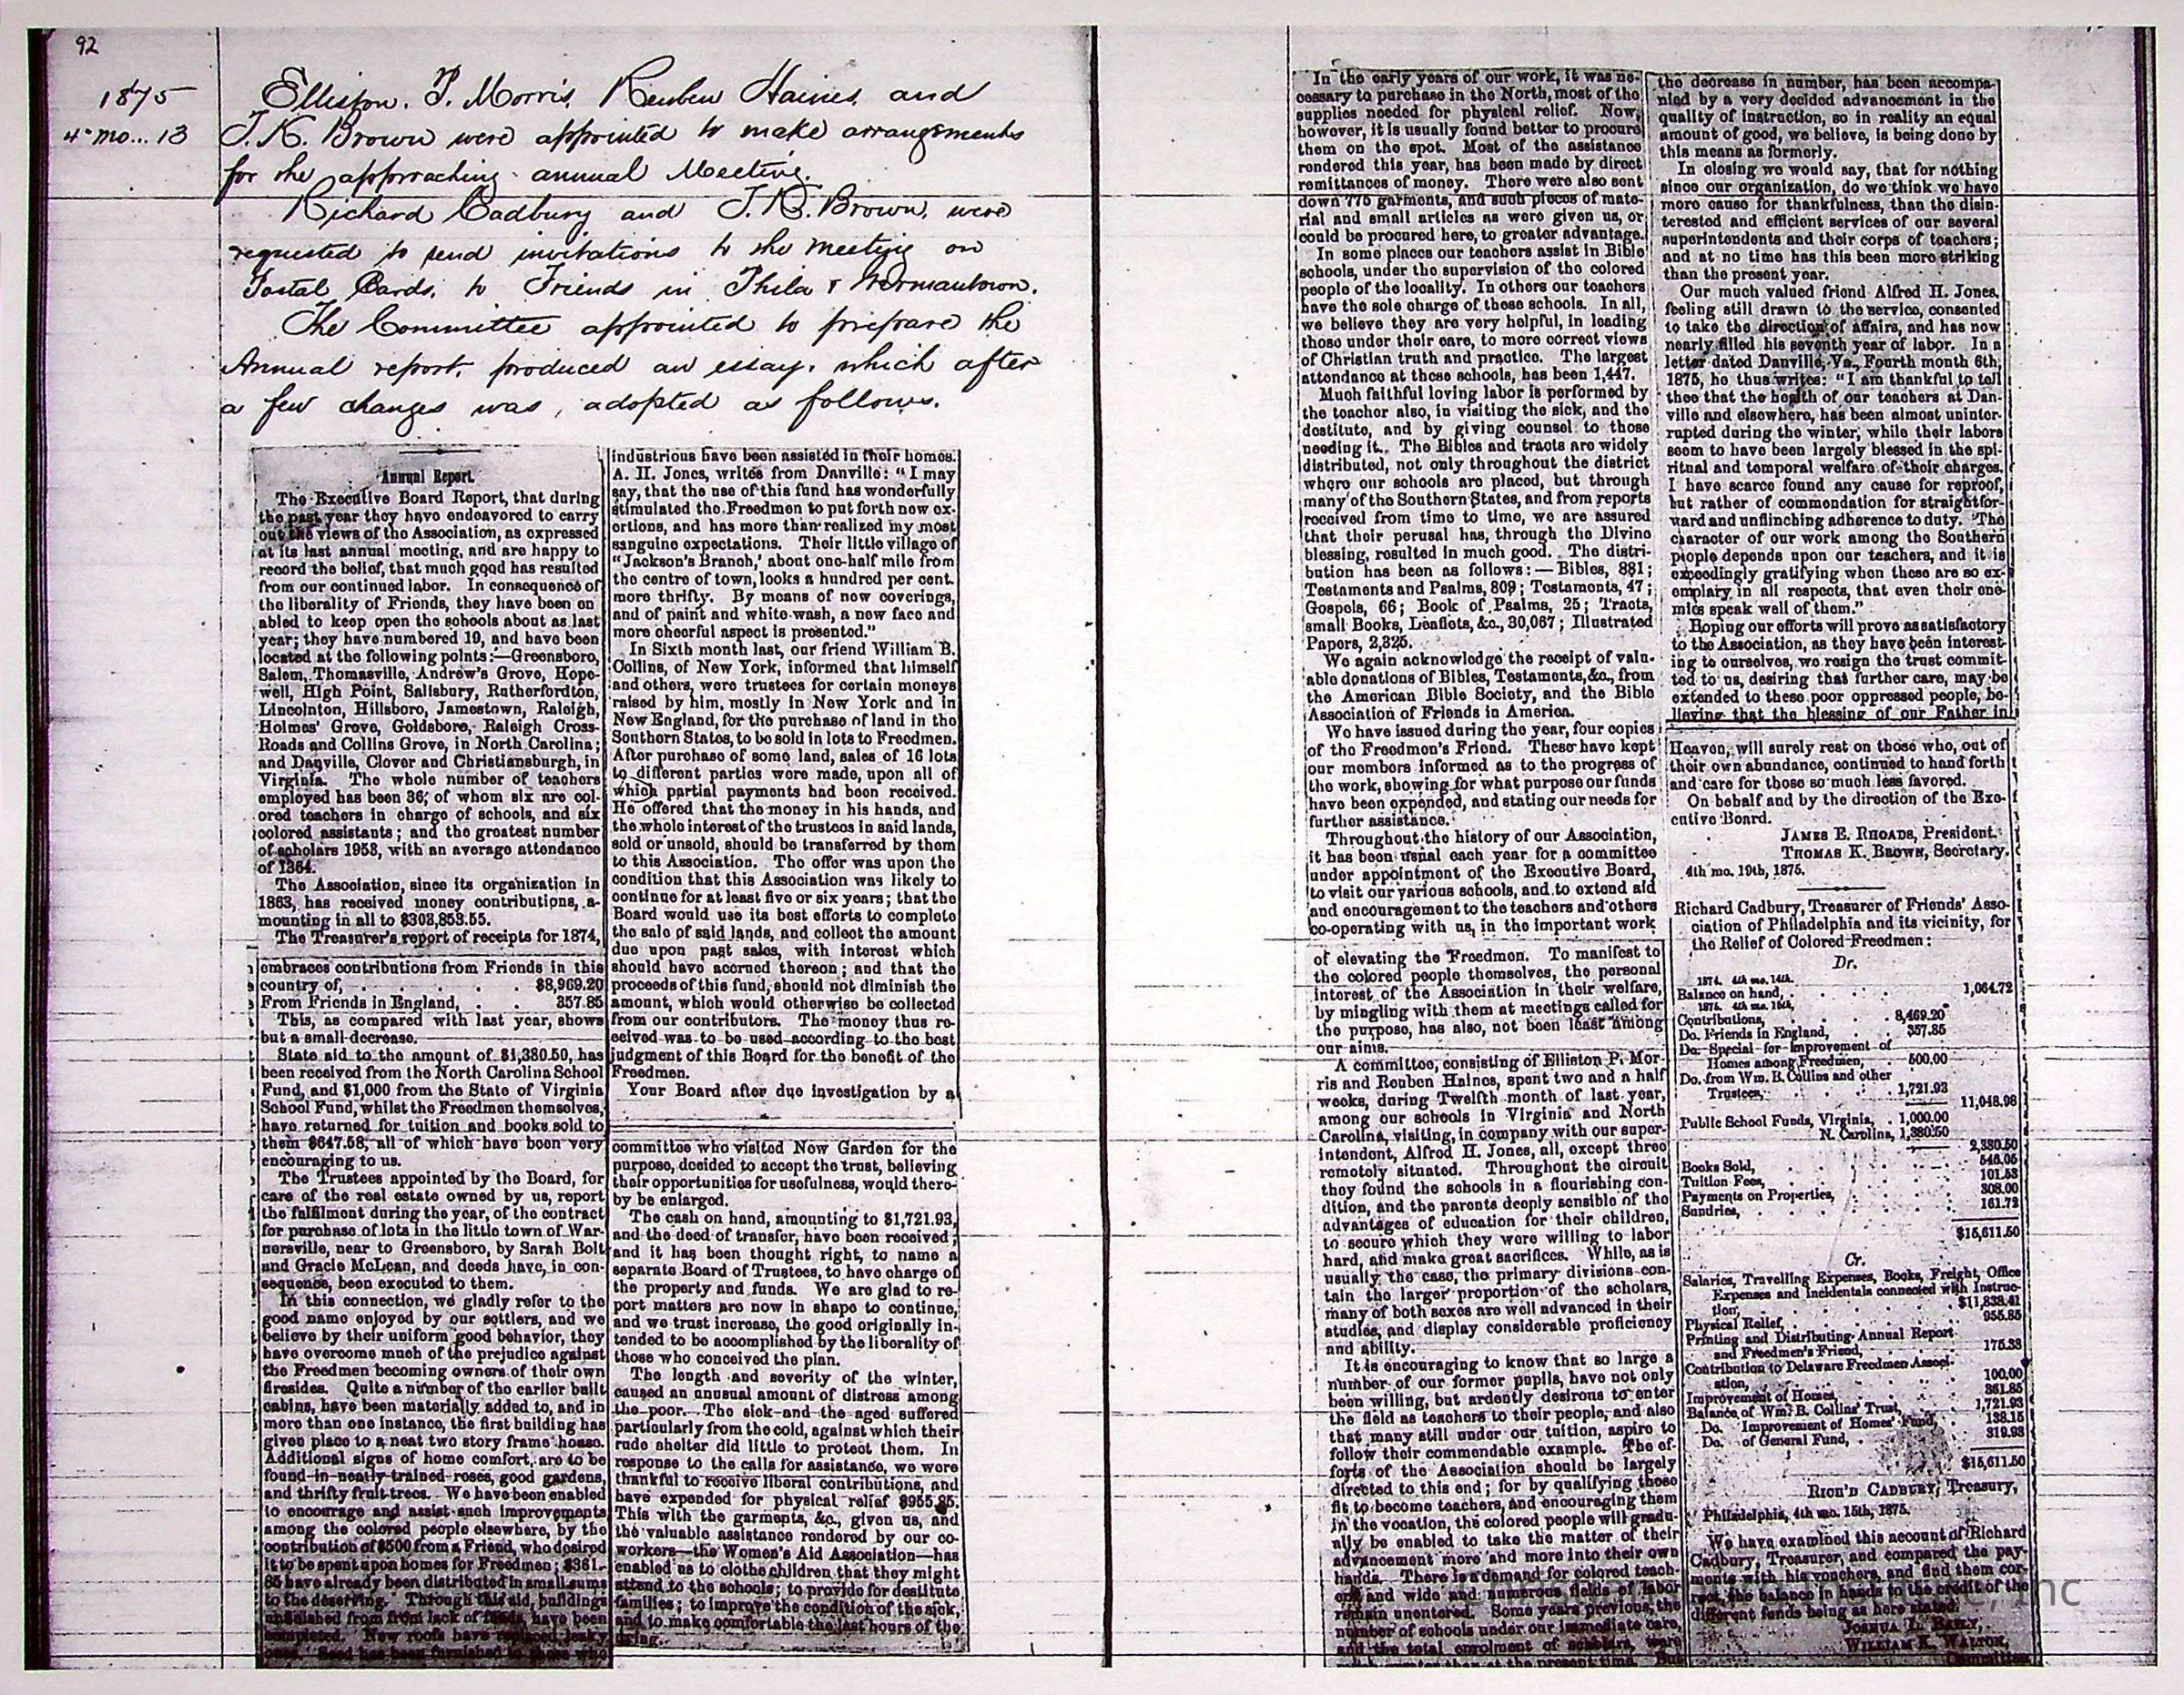 92
1875
4 mo... 13
Elliston. P. Morris, Reuben Haines, and
T. K. Brown were appointed to make arrangements
for the approaching annual Meeting.
Richard Cadbury and T. K. Brown, were
requested to send invitations to the meeting on
Postal Cards, to Friends in Phila & Germantown.
The Committee appointed to prepare the
Annual report, produced an essay, which after
a few changes was, adopted as follows.
Annual Report.
The Executive Board Report, that during
the past year they have endeavored to carry
out the views of the Association, as expressed
at its last annual meeting, and are happy to
record the belief, that much good has resulted
from our continued labor. In consequence of
the liberality of Friends, they have been en
abled to keep open the schools about as last
year; they have numbered 19, and have been
located at the following points:—Greensboro,
Salem, Thomasville, Andrew's Grove, Hope-
well, High Point, Salisbury, Rutherfordton,
Lincolnton, Hillsboro, Jamestown, Raleigh,
Holmes' Grove, Goldsboro, Raleigh Cross-
Roads and Collins Grove, in North Carolina;
and Danville, Clover and Christiansburgh, in
Virginia. The whole number of teachers
employed has been 36; of whom six are col-
ored teachers in charge of schools, and six
colored assistants; and the greatest number
of scholars 1953, with an average attendance
of 1364.
The Association, since its organization in
1863, has received money contributions, a-
mounting in all to $303,853.55.
The Treasurer's report of receipts for 1874,
embraces contributions from Friends in this
country of, . . . . . $8,969.20
From Friends in England, . . 357.85
This, as compared with last year, shows
but a small decrease.
State aid to the amount of $1,380.50, has
been received from the North Carolina School
Fund, and $1,000 from the State of Virginia
School Fund, whilst the Freedmen themselves,
have returned for tuition and books sold to
them $647.58, all of which have been very
encouraging to us.
The Trustees appointed by the Board, for
care of the real estate owned by us, report
the fulfilment during the year, of the contract
for purchase of lots in the little town of War-
nersville, near to Greensboro, by Sarah Bolt
and Gracie McLean, and deeds have, in con-
sequence, been executed to them.
In this connection, we gladly refer to the
good name enjoyed by our settlers, and we
believe by their uniform good behavior, they
have overcome much of the prejudice against
the Freedmen becoming owners of their own
firesides. Quite a number of the earlier built
cabins, have been materially added to, and in
more than one instance, the first building has
given place to a neat two story frame house.
Additional signs of home comfort, are to be
found in neatly trained roses, good gardens,
and thrifty fruit trees. We have been enabled
to encourage and assist such improvements
among the colored people elsewhere, by the
contribution of $500 from a Friend, who desired
it to be spent upon homes for Freedmen; $361.-
85 have already been distributed in small sums
to the deserving. Through this aid, buildings
unfinished from lack of funds, have been
completed. New roofs have replaced leaky
industrious have been assisted in their homes.
A. H. Jones, writes from Danville: "I may
say, that the use of this fund has wonderfully
stimulated the Freedmen to put forth new ex-
ertions, and has more than realized my most
sanguine expectations. Their little village of
"Jackson's Branch,' about one-half mile from
the centre of town, looks a hundred per cent.
more thrifty. By means of new coverings,
and of paint and white-wash, a new face and
more cheerful aspect is presented."
In Sixth month last, our friend William B.
Collins, of New York, informed that himself
and others, were trustees for certain moneys
raised by him, mostly in New York and in
New England, for the purchase of land in the
Southern States, to be sold in lots to Freedmen.
After purchase of some land, sales of 16 lots
to different parties were made, upon all of
which partial payments had been received.
He offered that the money in his hands, and
the whole interest of the trustees in said lands,
sold or unsold, should be transferred by them
to this Association. The offer was upon the
condition that this Association was likely to
continue for at least five or six years; that the
Board would use its best efforts to complete
the sale of said lands, and collect the amount
due upon past sales, with interest which
should have accrued thereon; and that the
proceeds of this fund, should not diminish the
amount, which would otherwise be collected
from our contributors. The money thus re-
ceived was to be used according to the best
judgment of this Board for the benefit of the
Freedmen.
Your Board after due investigation by a
committee who visited New Garden for the
purpose, decided to accept the trust, believing
their opportunities for usefulness, would there-
by be enlarged.
The cash on hand, amounting to $1,721.93,
and the deed of transfer, have been received;
and it has been thought right, to name a
separate Board of Trustees, to have charge of
the property and funds. We are glad to re-
port matters are now in shape to continue,
and we trust increase, the good originally in-
tended to be accomplished by the liberality of
those who conceived the plan.
The length and severity of the winter,
caused an unusual amount of distress among
the poor. The sick and the aged suffered
particularly from the cold, against which their
rude shelter did little to protect them. In
response to the calls for assistance, we were
thankful to receive liberal contributions, and
have expended for physical relief $955.85.
This with the garments, &c., given us, and
the valuable assistance rendered by our co-
workers—the Women's Aid Association—has
enabled us to clothe children that they might
attend to the schools; to provide for destitute
families; to improve the condition of the sick,
and to make comfortable the last hours of the
dying.
In the early years of our work, it was ne-
cessary to purchase in the North, most of the
supplies needed for physical relief. Now,
however, it is usually found better to procure
them on the spot. Most of the assistance
rendered this year, has been made by direct
remittances of money. There were also sent
down 775 garments, and such pieces of mate-
rial and small articles as were given us, or
could be procured here, to greater advantage.
In some places our teachers assist in Bible
schools, under the supervision of the colored
people of the locality. In others our teachers
have the sole charge of these schools. In all,
we believe they are very helpful, in leading
those under their care, to more correct views
of Christian truth and practice. The largest
attendance at these schools, has been 1,447.
Much faithful loving labor is performed by
the teacher also, in visiting the sick, and the
destitute, and by giving counsel to those
needing it. The Bibles and tracts are widely
distributed, not only throughout the district
where our schools are placed, but through
many of the Southern States, and from reports
received from time to time, we are assured
that their perusal has, through the Divine
blessing, resulted in much good. The distri-
bution has been as follows:—Bibles, 881;
Testaments and Psalms, 809; Testaments, 47;
Gospels, 66; Book of Psalms, 25; Tracts,
small Books, Leaflets, &c., 30,067; Illustrated
Papers, 2,325.
We again acknowledge the receipt of valu-
able donations of Bibles, Testaments, &c., from
the American Bible Society, and the Bible
Association of Friends in America.
We have issued during the year, four copies
of the Freedmen's Friend. These have kept
our members informed as to the progress of
the work, showing for what purpose our funds
have been expended, and stating our needs for
further assistance.
Throughout the history of our Association,
it has been usual each year for a committee
under appointment of the Executive Board,
to visit our various schools, and to extend aid
and encouragement to the teachers and others
co-operating with us, in the important work
of elevating the Freedmen. To manifest to
the colored people themselves, the personal
interest of the Association in their welfare,
by mingling with them at meetings called for
the purpose, has also, not been least among
our aims.
A committee, consisting of Elliston P. Mor-
ris and Reuben Haines, spent two and a half
weeks, during Twelfth month of last year,
among our schools in Virginia and North
Carolina, visiting, in company with our super-
intendent, Alfred H. Jones, all, except three
remotely situated. Throughout the circuit
they found the schools in a flourishing con-
dition, and the parents deeply sensible of the
advantages of education for their children,
to secure which they were willing to labor
hard, and make great sacrifices. While, as is
usually the case, the primary divisions con-
tain the larger proportion of the scholars,
many of both sexes are well advanced in their
studies, and display considerable proficiency
and ability.
It is encouraging to know that so large a
number of our former pupils, have not only
been willing, but ardently desirous to enter
the field as teachers to their people, and also
that many still under our tuition, aspire to
follow their commendable example. The ef-
forts of the Association should be largely
directed to this end; for by qualifying those
fit to become teachers, and encouraging them
in the vocation, the colored people will gradu-
ally be enabled to take the matter of their
advancement more and more into their own
hands. There is a demand for colored teach-
ers and wide and numerous fields of labor
remain unentered. Some years previous, the
number of schools under our immediate care,
and the total enrolment of scholars, were
much greater than at the present time. But
the decrease in number, has been accompa-
nied by a very decided advancement in the
quality of instruction, so in reality an equal
amount of good, we believe, is being done by
this means as formerly.
In closing we would say, that for nothing
since our organization, do we think we have
more cause for thankfulness, than the disin-
terested and efficient services of our several
superintendents and their corps of teachers;
and at no time has this been more striking
than the present year.
Our much valued friend Alfred H. Jones,
feeling still drawn to the service, consented
to take the direction of affairs, and has now
nearly filled his seventh year of labor. In a
letter dated Danville, Va., Fourth month 6th,
1875, he thus writes: "I am thankful to tell
thee that the health of our teachers at Dan-
ville and elsewhere, has been almost uninter-
rupted during the winter, while their labors
seem to have been largely blessed in the spi-
ritual and temporal welfare of their charges.
I have scarce found any cause for reproof,
but rather of commendation for straightfor-
ward and unflinching adherence to duty. The
character of our work among the Southern
people depends upon our teachers, and it is
exceedingly gratifying when these are so ex-
emplary in all respects, that even their ene-
mies speak well of them."
Hoping our efforts will prove as satisfactory
to the Association, as they have been interest-
ing to ourselves, we resign the trust commit-
ted to us, desiring that further care, may be
extended to these poor oppressed people, be-
lieving that the blessing of our Father in
Heaven, will surely rest on those who, out of
their own abundance, continued to hand forth
and care for those so much less favored.
On behalf and by the direction of the Exe-
cutive Board.
JAMES E. RHOADS, President.
THOMAS K. BROWN, Secretary.
4th mo. 19th, 1875.
Richard Cadbury, Treasurer of Friends' Asso-
ciation of Philadelphia and its vicinity, for
the Relief of Colored Freedmen:
Dr.
1874. 4th mo. 14th.
Balance on hand, . . . . 1,064.72
1875. 4th mo. 15th.
Contributions, . . . . 8,469.20
Do. Friends in England, . . 357.85
Do. Special for Improvement of
Homes among Freedmen, 500.00
Do. from Wm. B. Collins and other
Trustees, . . . 1,721.93
11,048.98
Public School Funds, Virginia, . 1,000.00
N. Carolina, 1,380.50
2,380.50
Books Sold, . . . . 546.05
Tuition Fees, . . . . 101.53
Payments on Properties, . . . 308.00
Sundries, . . . . 161.72
$15,611.50
Cr.
Salaries, Travelling Expenses, Books, Freight, Office
Expenses and Incidentals connected with Instruc-
tion, . . . . $11,838.41
Physical Relief, . . . . 955.85
Printing and Distributing Annual Report
and Freedmen's Friend, . . . 175.33
Contribution to Delaware Freedmen Associ-
ation, . . . . 100.00
Improvement of Homes, . . . 361.85
Balance of Wm. B. Collins' Trust, . . 1,721.93
Do. Improvement of Homes' Fund, . 138.15
Do. of General Fund, . . . 319.98
$15,611.50
RICH'D CADBURY, Treasury,
Philadelphia, 4th mo. 15th, 1875.
We have examined this account of Richard
Cadbury, Treasurer, and compared the pay-
ments with his vouchers, and find them cor-
rect, the balance in hands to the credit of the
different funds being as here stated.
JOSHUA L. BAILY,
WILLIAM K. WALTON,
Committee.
Inc